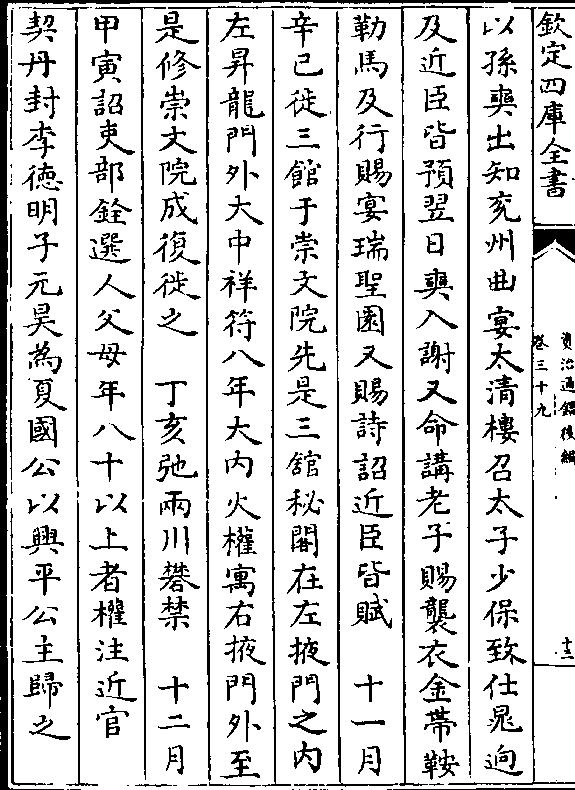 欽定四庫全書
資治通鑑後編
卷三十九
十三
以孫奭出知兖州曲宴太清樓召太子少保致仕晁迥
及近臣皆預翌日奭入謝又命講老子賜襲衣金帶鞍
勒馬及行賜宴瑞聖園又賜詩詔近臣皆賦　十一月
辛已徙三館于崇文院先是三舘秘閣在左掖門之内
左昇龍門外大中祥符八年大内火權寓右掖門外至
是修崇文院成復徙之　丁亥弛兩川礬禁　十二月
甲寅詔吏部銓選人父母年八十以上者權注近官
契丹封李德明子元昊為夏國公以興平公主歸之